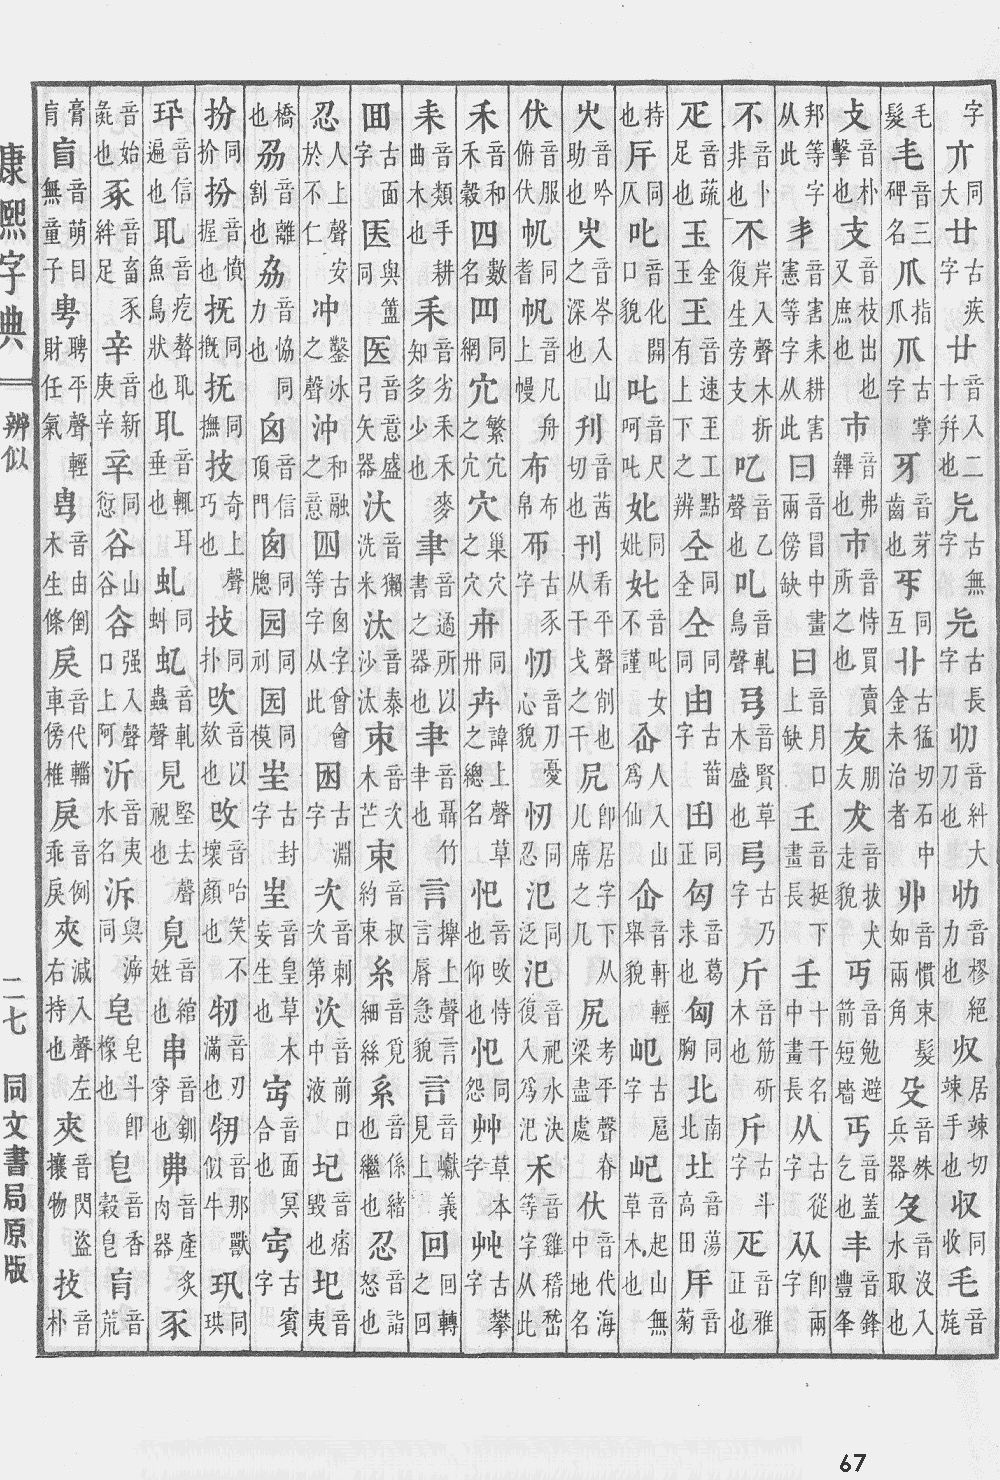 字亣同大廿古疾字廿音入二十幷也旡古無字兂古長字音糾大刀也音樛絕力也収居竦切竦手也収同收毛音旄
髮毛音三碑名爪指爪爪古掌字牙音芽齒也㸦同互卝古猛切石中金未治者丱音慣束髮如兩角殳音殊兵器𠬛音沒入水取也
攴音朴擊也支音枝出也又庶也巿音弗韠也市音恃買賣所之也友朋友犮音拔犬走貌丏音勉避箭短墻丐音蓋乞也丰音鋒豐夆
邦等字从此丯音害耒耕害憲等字从此冃音冒中畫兩傍缺曰音月口上缺𡈼音挺下畫長壬十干名中畫長从古從字从卽兩字
不音卜非也不岸入聲木折復生旁支音乙聲也音軋鳥聲音賢草木盛也弖古乃字斤音筋斫木也斤古斗字疋音雅正也
疋音蔬足也玉金玉王音速王工點有上下之辨仝同全仝同同甴古葘字囸同正匃音葛求也匈同胸北南北音蕩高田音菊
持也厈同仄音化開口貌叱音尺呵叱妣同妣音叱女不謹仚人入山爲仙仚音軒輕舉貌古扈字屺音起山無草木也
音吟助也音岑入山之深也音茜切也刊看平聲削也从干戈之干凥卽居字下从几席之几尻考平聲脊梁盡處音代海中地名
伏音服俯伏帆音凡舟上幔布布帛古豕字忉音刀憂心貌同忍氾同泛汜音祀水決復入爲汜禾音雞稽嵆等字从此
禾音和禾穀四數名罒同網冗繁冗之冗穴巢穴之穴卅同卅卉諱上聲草之總名音攺恃也仰也同怨艸草本字古攀字
耒音類手耕曲木音劣禾禾麥知多少也聿音遹所以書之器也肀音聶竹聿也言㩜上聲言脣急貌言音巘義見上回回轉之回
囬古面字與簠同医音意盛弓矢器汏音獺洗米汰音泰沙汰朿音次木芒束音叔約束糸音覓細絲系音係緒也繼也忍音詣怒也
忍人上聲安於不仁冲鑿冰之聲沖和融之意古囱字曾會等字从此囦古淵字次音刺次第㳄音前口中液圮音痞毀也圯音夷
橋也刕音離割也劦音協同力也囟音信頂門囱同牕园同刓同模古封字㞷音皇草木妄生也音面冥合也古賓字
扮同扮扮音憤握也抚同摡抚同撫技奇上聲巧也技同扑音以欬也音咍笑不壞顏也牣音刃滿也音那獸似牛同珙
音信遍也音疙聲魚鳥狀也耴音輒耳垂也虬同蚪音軋蟲聲見堅去聲視也音綰姓也串音釧穿也丳音產炙肉器豕
音始彘也豖音畜豕絆足辛音新庚辛䇂同愆谷山谷强入聲口上阿沂音夷水名泝與㴑同皂皂斗卽橡也皀音香穀皀肓音荒
膏肓盲音萌目無童子甹聘平聲輕財任氣音由倒木生條音代車傍轖戾音例乖戾夾減入聲左右持也音閃盜攘物技音朴
康熙字典 辨似 二七 同文書局原版
67